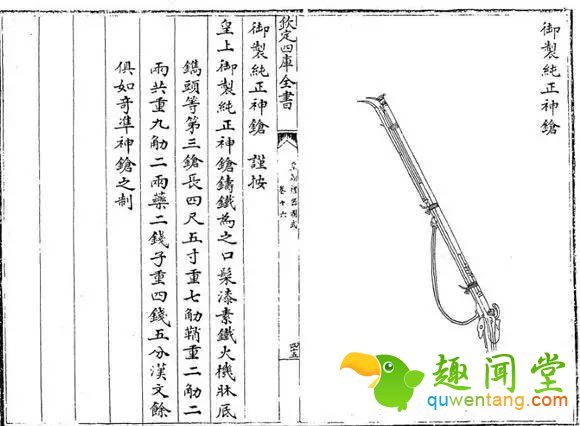 御製純正神鎗
欽定四庫全書
皇朝禮器圖式
卷十六
御製純正神鎗 謹按
皇上御製純正神鎗鑄鐵為之口髹漆素鐵火機牀底
鐫頭等第三鎗長四尺五寸重七觔鞘重二觔二
兩共重九觔二兩藥二錢子重四錢五分漢文餘
俱如奇準神鎗之制
趣闻堂
quwentang.com